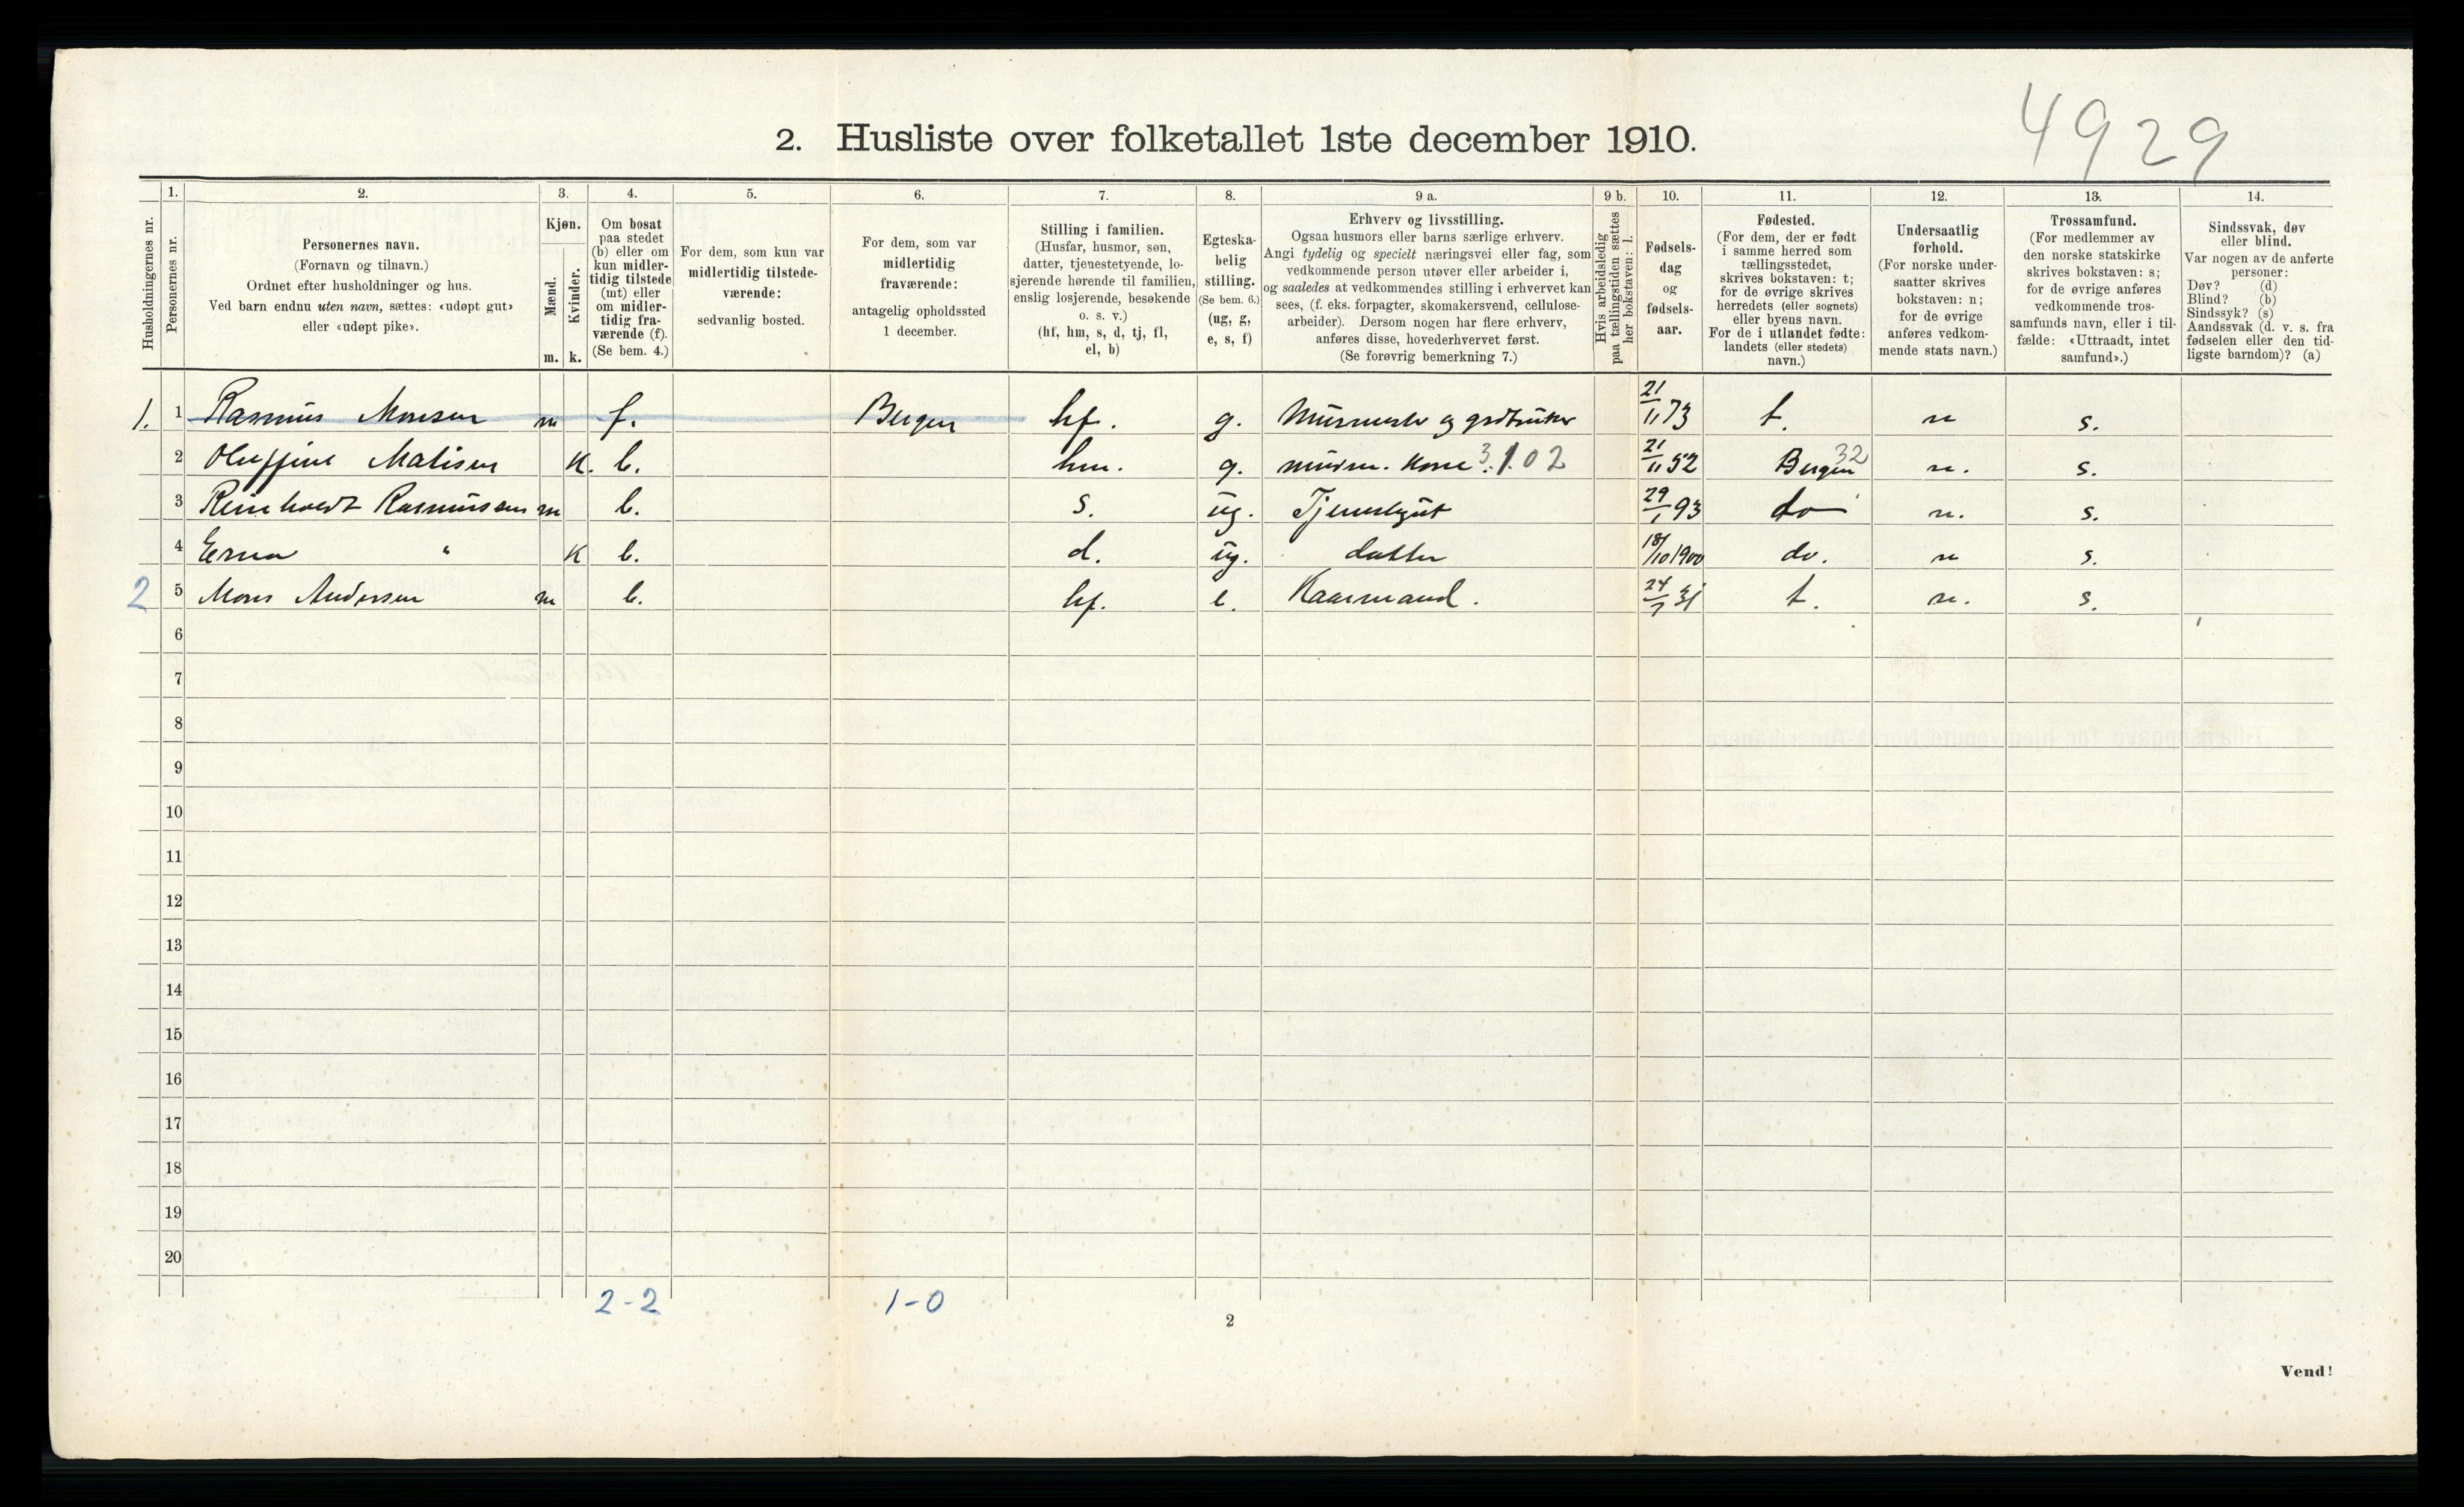 4929
2. Husliste over folketallet 1ste december 1910.
Husholdningernes nr.
1.
Personernes nr.
2.
Personernes navn.
(Fornavn og tilnavn.)
Ordnet efter husholdninger og hus.
Ved barn endnu uten navn, sættes: «udøpt gut»
eller «udøpt pike».
3.
Kjøn.
Mænd.
m.
Kvinder.
k.
4.
Om bosat
paa stedet
(b) eller om
kun midler-
tidig tilstede
(mt) eller
om midler-
tidig fra-
værende (f).
(Se bem. 4.)
5.
For dem, som kun var
midlertidig tilstede-
værende:
sedvanlig bosted.
6.
For dem, som var
midlertidig
fraværende:
antagelig opholdssted
1 december.
7.
Stilling i familien.
(Husfar, husmor, søn,
datter, tjenestetyende, lo-
sjerende hørende til familien,
enslig losjerende, besøkende
o. s. v.)
(hf, hm, s, d, tj, fl,
el, b)
8.
Egteska-
belig
stilling.
(Se bem. 6.)
(ug, g,
e, s, f)
9 a.
Erhverv og livsstilling.
Ogsaa husmors eller barns særlige erhverv.
Angi tydelig og specielt næringsvei eller fag, som
vedkommende person utøver eller arbeider i,
og saaledes at vedkommendes stilling i erhvervet kan
sees, (f. eks. forpagter, skomakersvend, cellulose-
arbeider). Dersom nogen har flere erhverv,
anføres disse, hovederhvervet først.
(Se forøvrig bemerkning 7.)
9 b.
Hvis arbeidsledig
paa tællingstiden sættes
her bokstaven: l.
10.
Fødsels-
dag
og
fødsels-
aar.
11.
Fødested.
(For dem, der er født
i samme herred som
tællingsstedet,
skrives bokstaven: t;
for de øvrige skrives
herredets (eller sognets)
eller byens navn.
For de i utlandet fødte:
landets (eller stedets)
navn.)
12.
Undersaatlig
forhold.
(For norske under-
saatter skrives
bokstaven: n;
for de øvrige
anføres vedkom-
mende stats navn.)
13.
Trossamfund.
(For medlemmer av
den norske statskirke
skrives bokstaven: s;
for de øvrige anføres
vedkommende tros-
samfunds navn, eller i til-
fælde: «Uttraadt, intet
samfund».)
14.
Sindssvak, døv
eller blind.
Var nogen av de anførte
personer:
Døv? (d)
Blind? (b)
Sindssyk? (s)
Aandssvak (d. v. s. fra
fødselen eller den tid-
ligste barndom)? (a)
1. 1 Rasmus Monsen m f. Bergen hf. g. Murmester og grdbruker 21/11 73 t. n s.
2 Oluffine Matisen K. b. hm. g. murm. Kone 3.1.02 21/11 52 Bergen 32 n. s.
3 Reinholdt Rasmussen m b. s. ug. Tjenestgut 29/1 93 do n. s.
4 Erna " K b. d. ug. datter 18/10 1900 do. n s.
2 5 Mons Andersen m b. hf. e. Kaarmand. 24/7 31 t. n. s.
6
7
8
9
10
11
12
13
14
15
16
17
18
19
20
2-2 1-0
2
Vend!